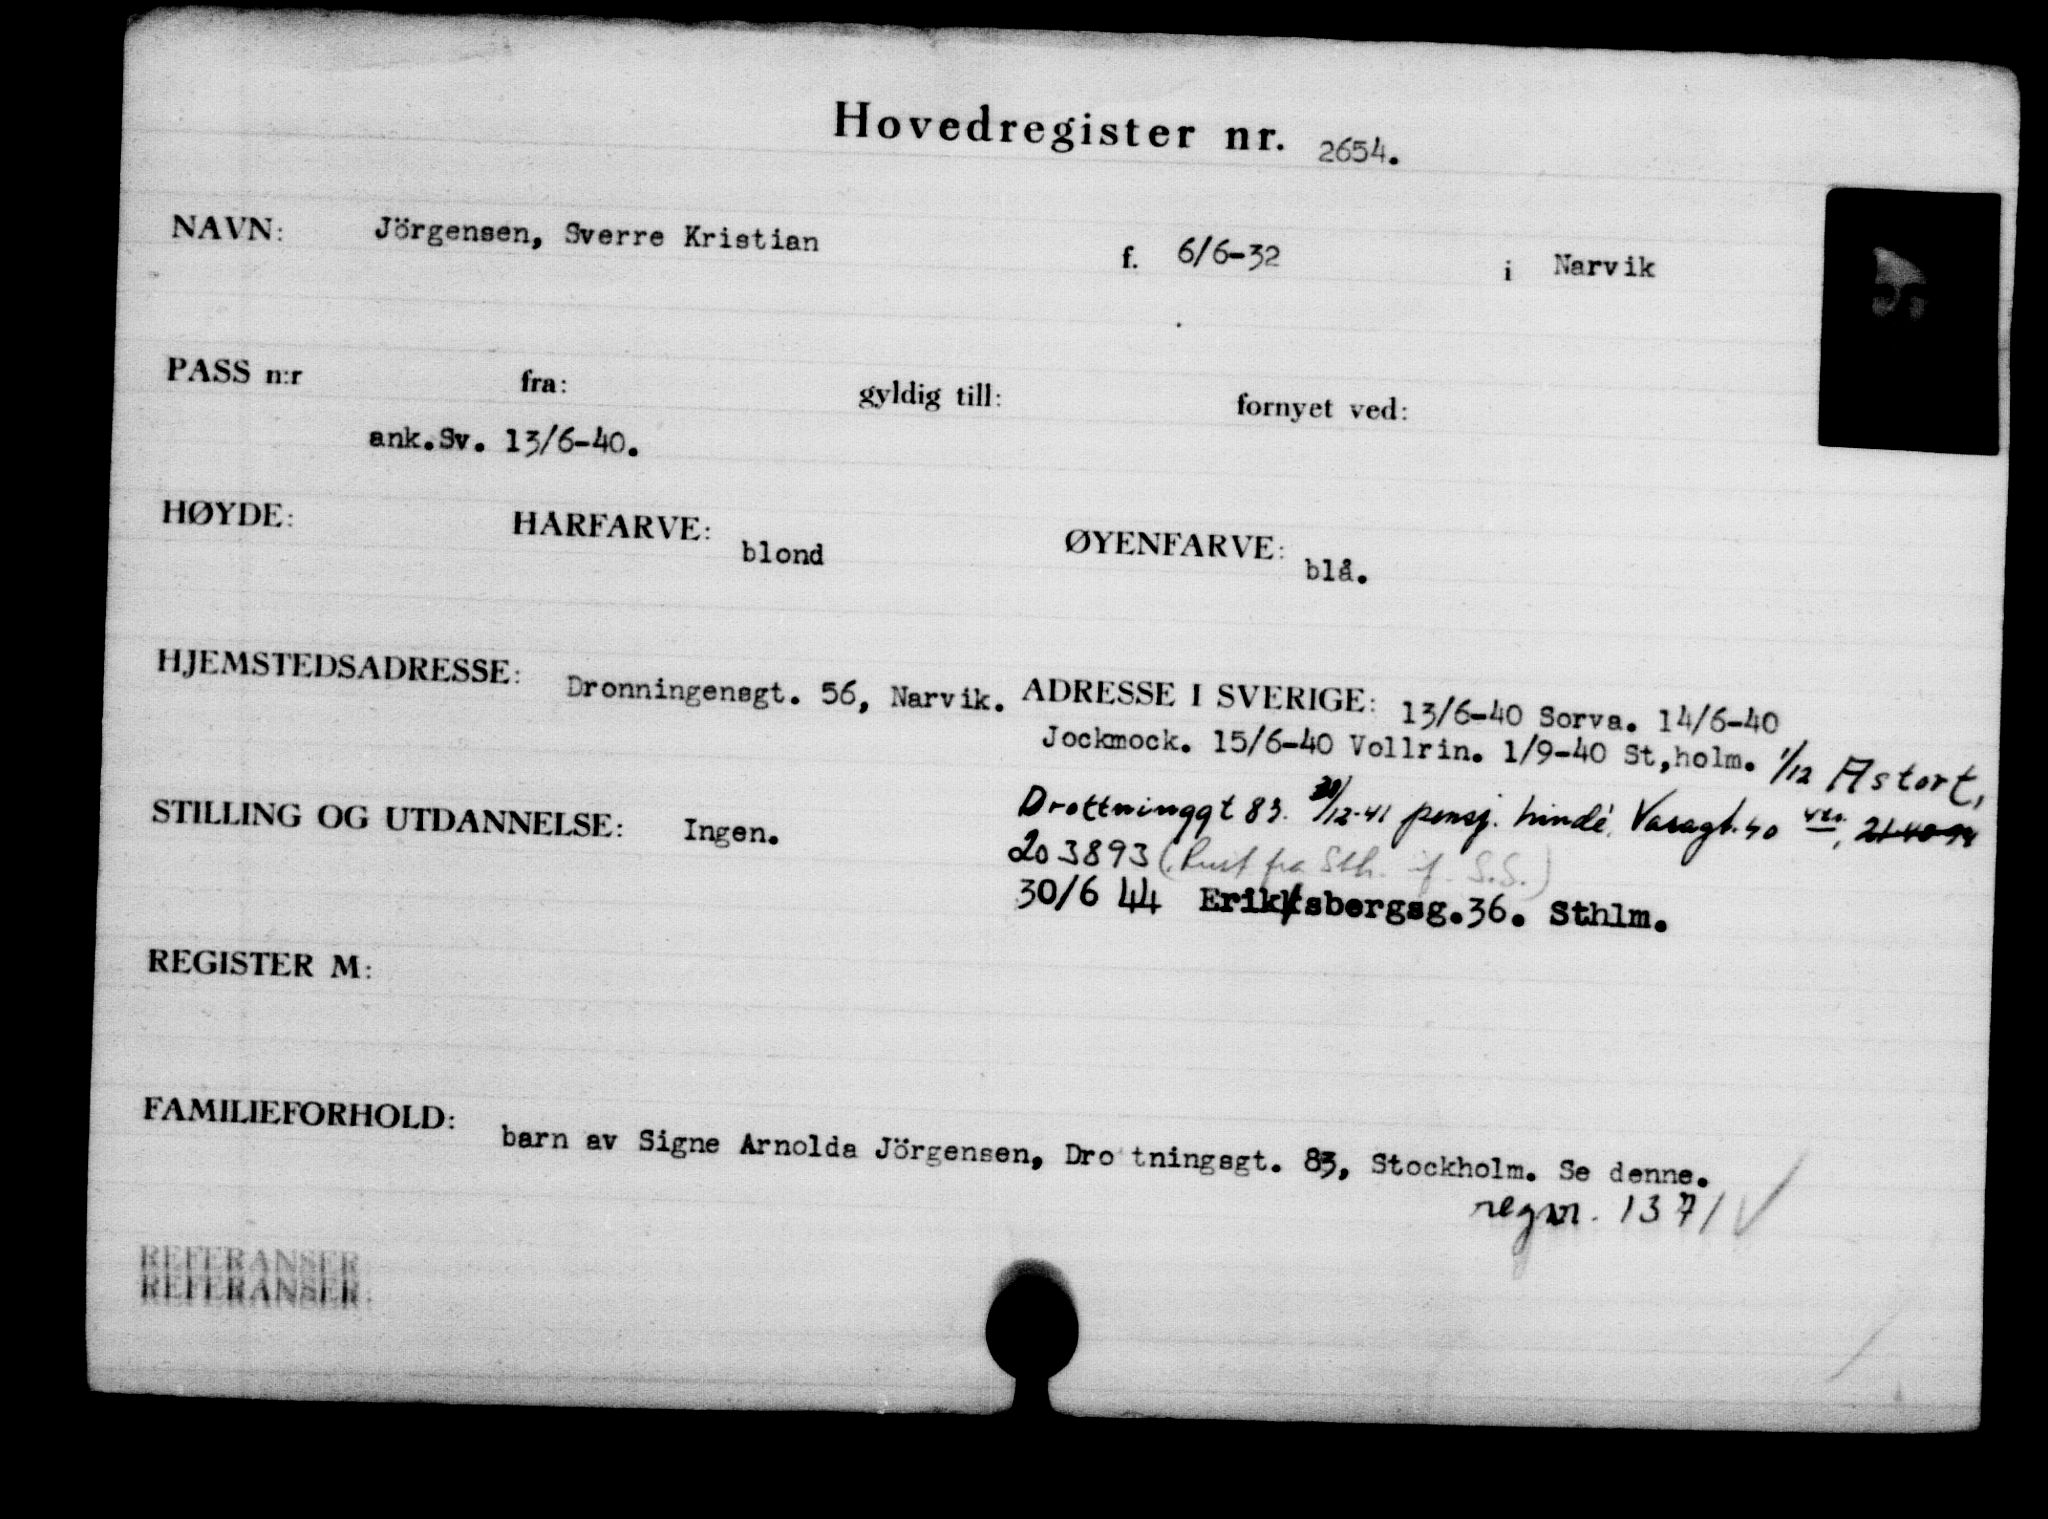 Hovedregister nr. 2654.
NAVN: Jörgensen, Sverre Kristian f. 6/6-32 i Narvik
PASS n:r fra: gyldig till: fornyet ved:
ank.Sv. 13/6-40.
HØYDE: HÅRFARVE: blond ØYENFARVE: blå.
HJEMSTEDSADRESSE: Dronningensgt. 56, Narvik. ADRESSE I SVERIGE: 13/6-40 Sorva. 14/6-40
Jockmock. 15/6-40 Vollrin. 1/9-40 St,holm. 1/12 Astort,
Drottninggt 83. /12-41 pensj. Lindé, Vasagt. 40
STILLING OG UTDANNELSE: Ingen.
203893 ( fra Sth. if. S.S.)
30/6 44 Eriksbergsg.36. Sthlm.
REGISTER M:
FAMILIEFORHOLD: barn av Signe Arnolda Jörgensen, Dro tningsgt. 83, Stockholm. Se denne.
regnr. 1371
REFERANSER
REFERANSER: